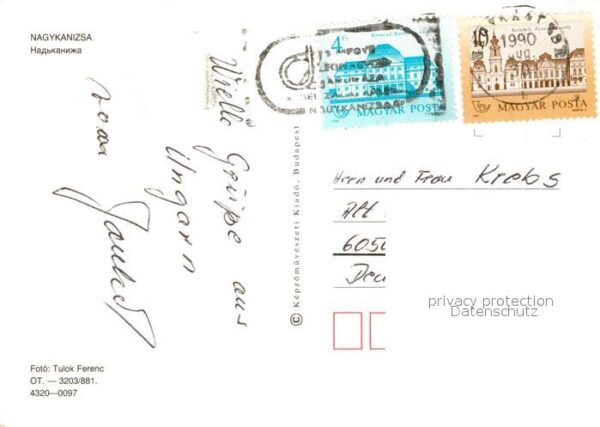 NAGYKANIZSA
Надьканижа
Viele Grüße aus
Ungarn
Fotó: Tulok Ferenc
OT. — 3203/881.
4320—0097
© Képzőművészeti Kiadó, Budapest
4 Ft
MAGYAR POSTA
NAGYKANIZSA
10
MAGYAR POSTA
1990
Herrn und Frau Krebs
Alt
6050
Deu
privacy protection
Datenschutz